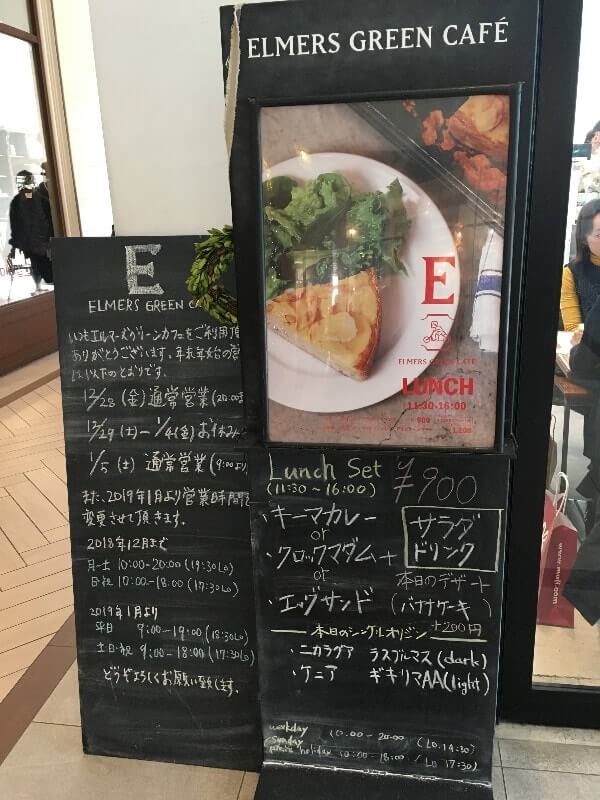 ELMERS GREEN CAFÉ
E
ELMERS GREEN CAFÉ
LUNCH
11:30-16:00
900
1,200
E
ELMERS GREEN CA
いつもエルマーズグリーンカフェをご利用頂
ありがとうございます。年末年始の営
は以下のとおりです。
12/28(金)通常営業(20:00
12/29(土)ー1/4(金)お休み
1/5(土) 通常営業(9:00より
また、2019年1月より営業時間を
変更させて頂きます。
2018年12月まで
月ー土 10:00-20:00(19:30LO)
日祝 10:00-18:00(17:30LO)
2019年1月より
平日 9:00-19:00(18:30LO)
土日・祝 9:00-18:00(17:30LO)
どうぞよろしくお願い致します。
Lunch Set ¥900
(11:30~16:00)
・キーマカレー
or
・クロックマダム +
or
・エッグサンド
サラダ
ドリンク
本日のデザート
(バナナケーキ)
+200円
本日のシングルオリジン
・ニカラグア ラスブルマス(dark)
・ケニア ギキリマAA(light)
weekday 10:00-20:00 (Lo.19:30)
sunday
holiday 10:00-18:00 / Lo 17:30)
www.muji.com